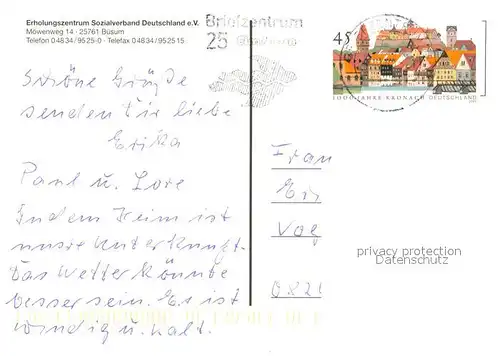 Erholungszentrum Sozialverband Deutschland e.V.
Möwenweg 14 · 25761 Büsum
Telefon 0 48 34 / 95 25-0 · Telefax 0 48 34 / 9 52 51 5
Briefzentrum
25
45
1000 JAHRE KRONACH DEUTSCHLAND
Schöne Grüße
senden dir liebe
Erika
Paul u. Lore
In dem Heim ist
unsre Unterkunft.
Das Wetter könnte
besser sein. Es ist
windig u. kalt.
Frau
privacy protection
Datenschutz